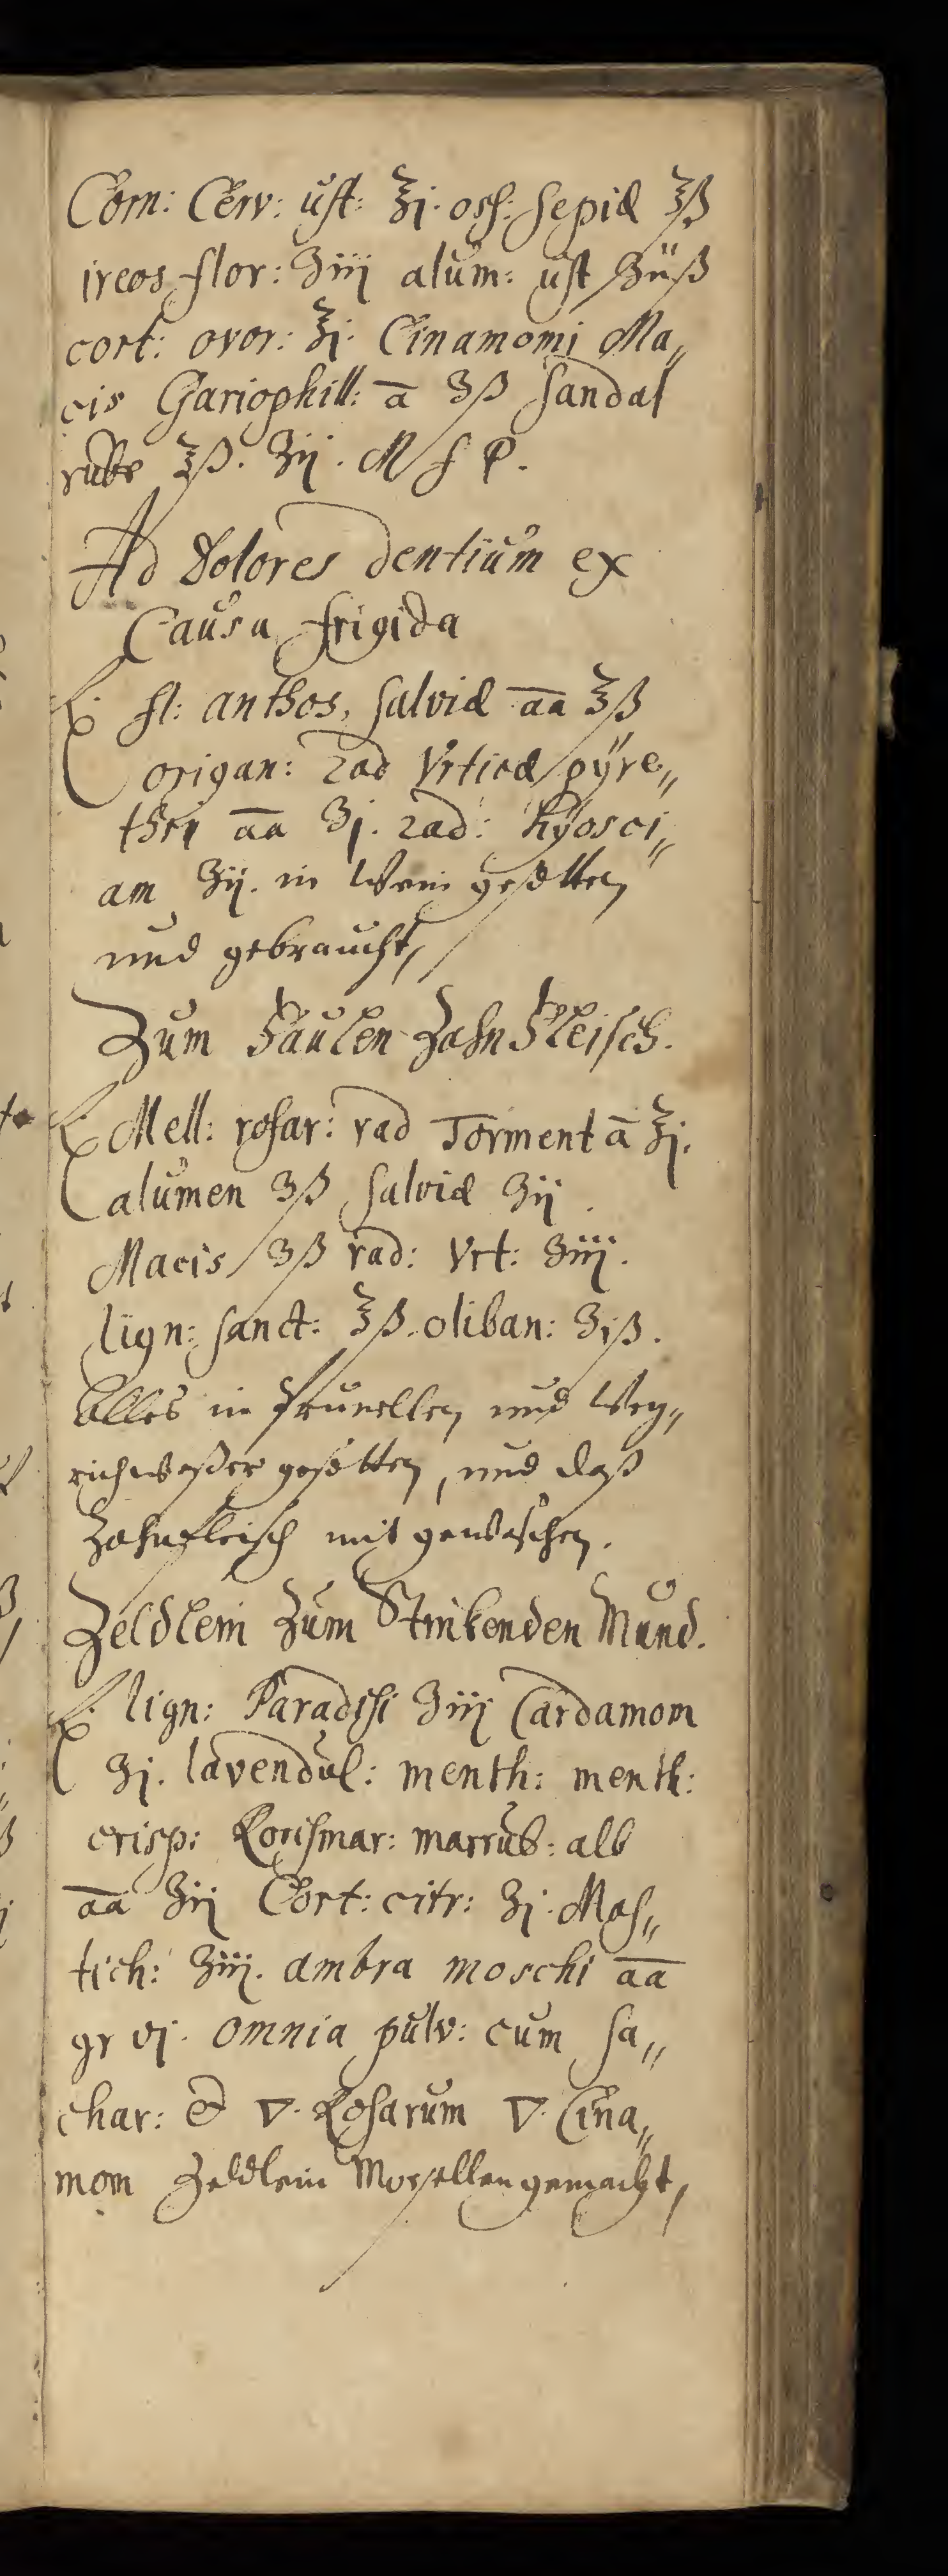 Corn: Cerv: ust: ℥j. oss: sepiæ ℥ß
ireos flor: ʒiij alum: ust ʒijß
cort: ovor: ℥j. Cinamomi Ma„
cis Gariophill: ā ʒß sandal
rube ℥ß. ʒij. M f P.
Ad Dolores dentium ex
Causa frigida
℞. fl: anthos, salviæ āā ℥ß
origan: rad Vrticæ pÿre„
thri āā ʒj. rad: hyosci„
am ʒij. in Wein gesotten
und gebraucht,
Zum Faulen Zahn Fleisch.
℞ Mell: rosar: rad Torment ā ℥j.
alumen ʒß salviæ ʒij
Macis ʒß rad: Vrt: ʒiij.
lign: sanct: ℥ß. oliban: ʒiß.
Alles in Prunellen und Weg„
richwaßer gesotten, und daß
Zahnfleisch mit gewaschen.
Zeldlein Zum Stinkenden Mund.
℞. lign: Paradisi ʒiij Cardamom
ʒj. lavendul: menth: menth:
crisp: Rorismar: marrub: alb
āā ʒij Cort: citr: ʒj. Mas„
tich: ʒiij. ambra moschi āā
gr vj. omnia pulv: cum sa„
char: & ▽. Rosarum ▽. Cina„
mom Zeldlein Morsellen gemacht,